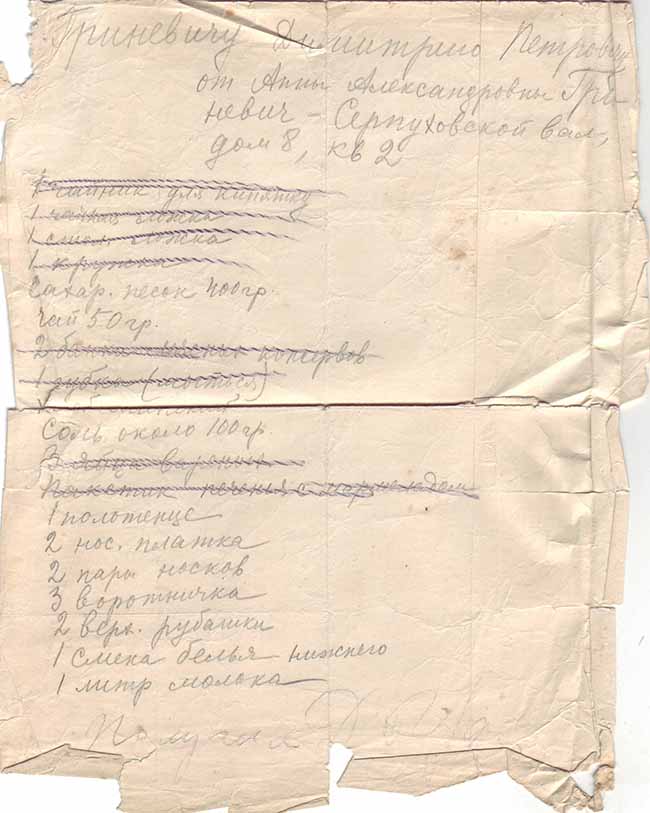 Гриневичу Димитрию Петровичу
от Анны Александровны Гри
невич - Серпуховской вал,
дом 8, кв 2
1 чайник для кипятку
1 чайная ложка
1 стол. ложка
1 кружка
Сахар. песок 400 гр.
Чай 50 гр.
2 банки мясных консервов
1 губка (мыться)
Соль около 100 гр.
3 яйца вареных
Пакетик печенья с мармеладом
1 полотенце
2 нос. платка
2 пары носков
3 воротничка
2 верх. рубашки
1 смена белья нижнего
1 литр молока
Получил